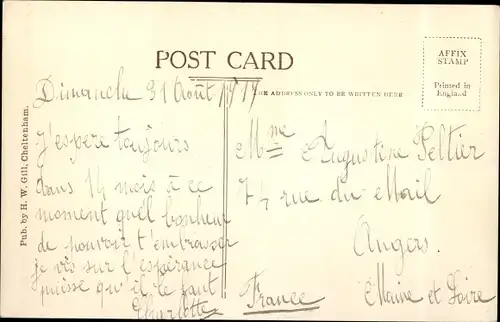 POST CARD
THE ADDRESS ONLY TO BE WRITTEN HERE
AFFIX
STAMP
Printed in
England
Pub. by H. W. Gill, Cheltenham.
Dimanche 31 Août 1919
J'espère toujours
dans 1½ mois à ce
moment quel bonheur
de pouvoir t'embrasser
je vis sur l'espérance
puisse qu'il le faut
Charlotte
Mme Augustine Peltier
rue du Mail
Angers.
Maine et Loire
France